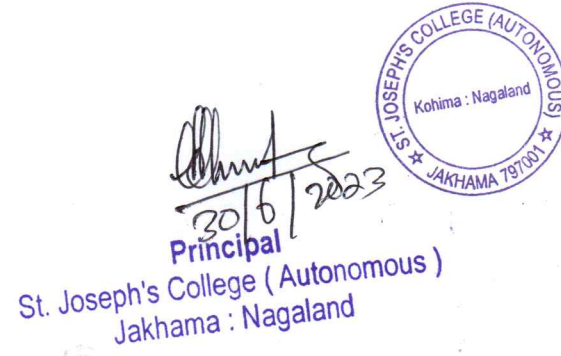 ST. JOSEPH'S COLLEGE (AUTONOMOUS)
Kohima : Nagaland
JAKHAMA 797001
30/6/2023
Principal
St. Joseph's College ( Autonomous )
Jakhama : Nagaland